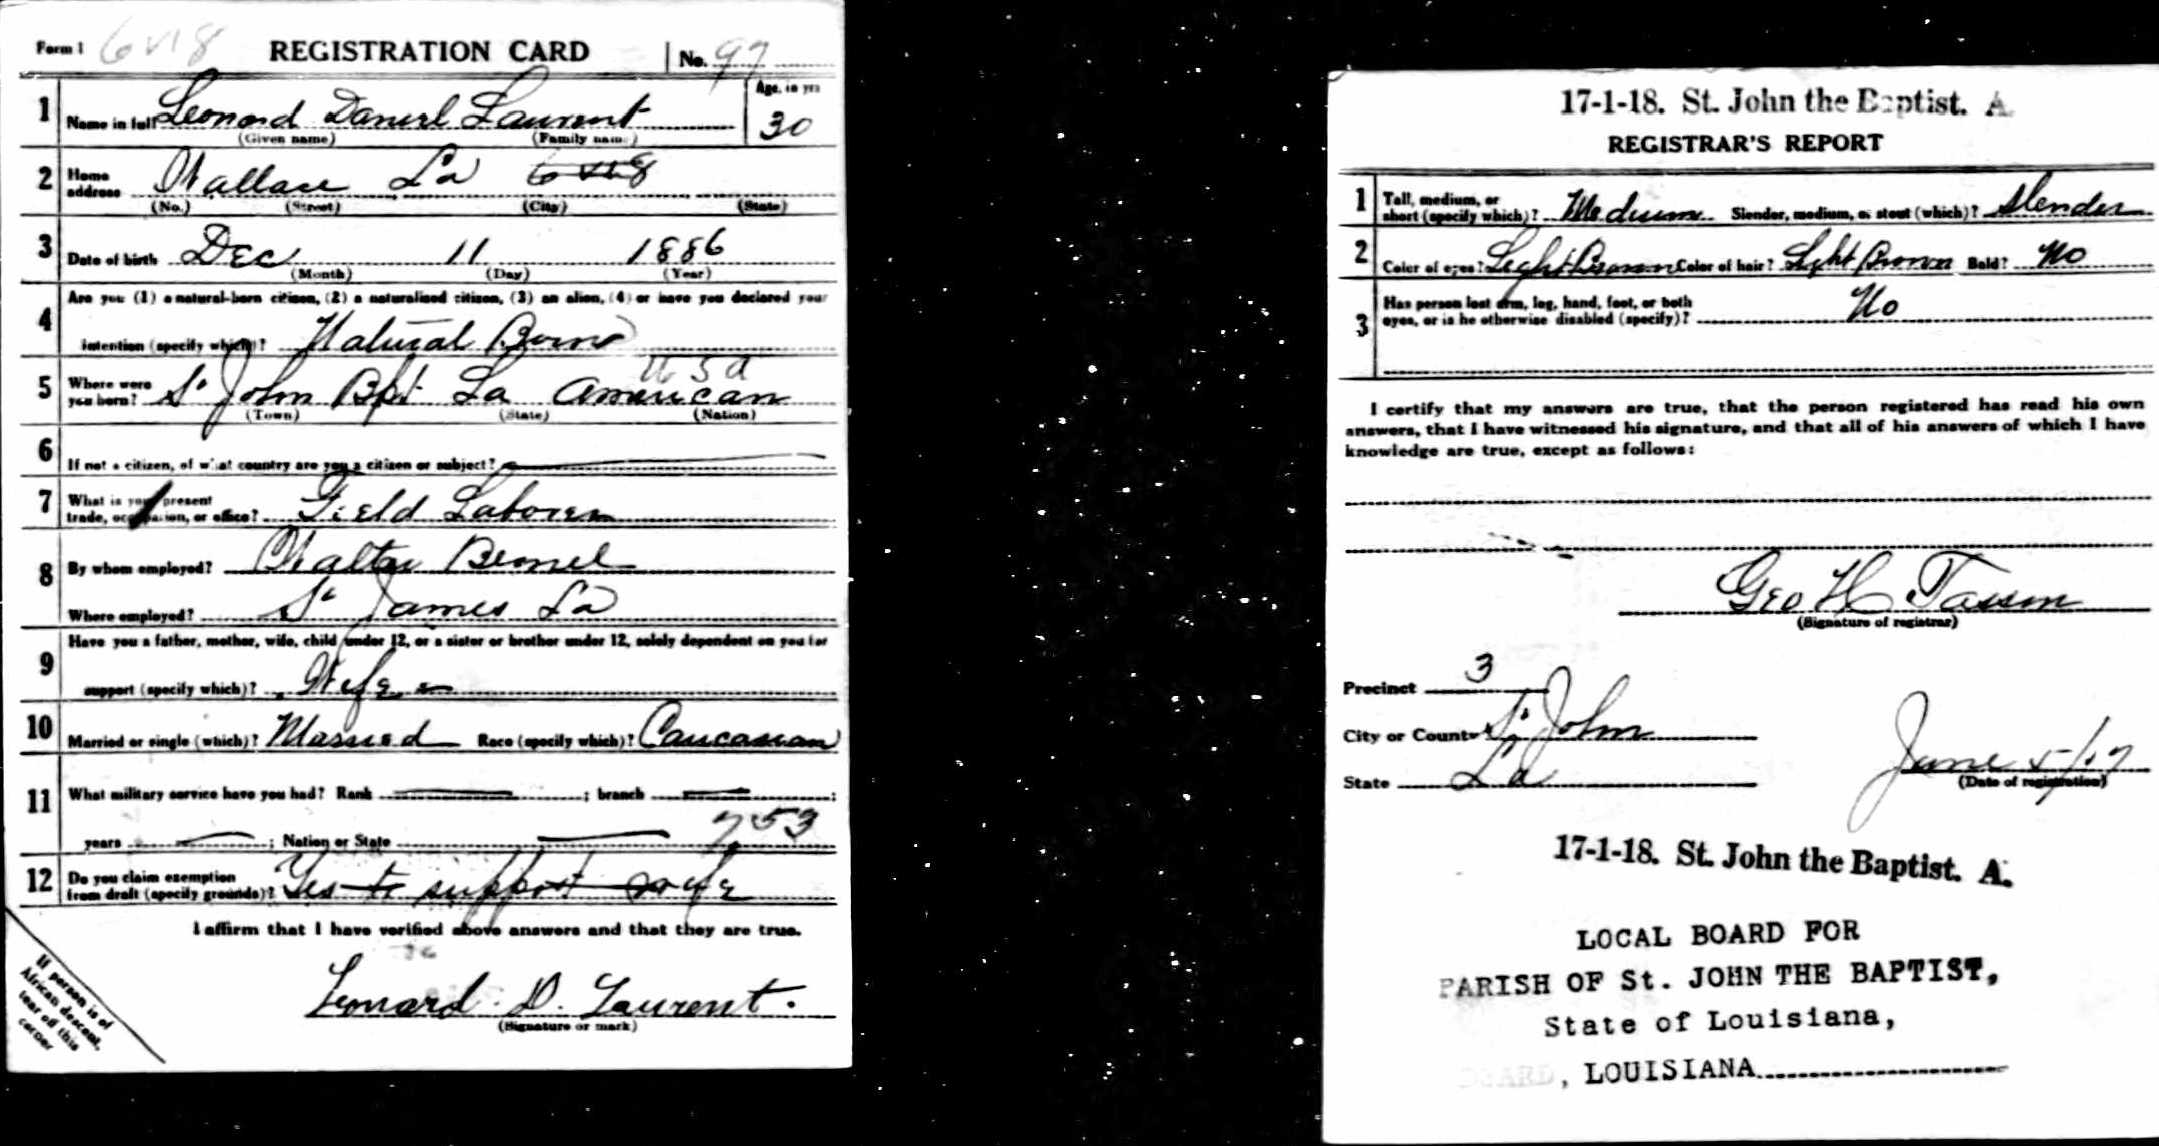 Form 1 REGISTRATION CARD No. 97
1 Name in full Leonard Daniel Laurent Age, in yrs 30
(Given name) (Family name)
2 Home address Wallace La
(No.) (Street) (City) (State)
3 Date of birth Dec 11 1886
(Month) (Day) (Year)
4 Are you (1) a natural-born citizen, (2) a naturalized citizen, (3) an alien, (4) or have you declared your
intention (specify which)? Natural Born
U S A
5 Where were you born? St John Bpt La American
(Town) (State) (Nation)
6 If not a citizen, of what country are you a citizen or subject?
7 What is your present trade, occupation, or office? Field Laborer
8 By whom employed? Walter
Where employed? St James La
9 Have you a father, mother, wife, child under 12, or a sister or brother under 12, solely dependent on you for
support (specify which)? Wife
10 Married or single (which)? Married Race (specify which)? Caucasian
11 What military service have you had? Rank ; branch ;
years ; Nation or State 753
12 Do you claim exemption from draft (specify grounds)? Yes to support wife
I affirm that I have verified above answers and that they are true.
Leonard D. Laurent.
(Signature or mark)
If person is of
African descent,
tear off this
corner
17-1-18. St. John the Baptist. A
REGISTRAR'S REPORT
1 Tall, medium, or short (specify which)? Medium Slender, medium, or stout (which)? Slender
2 Color of eyes? Light Brown Color of hair? Light Brown Bald? No
3 Has person lost arm, leg, hand, foot, or both
eyes, or is he otherwise disabled (specify)? No
I certify that my answers are true, that the person registered has read his own
answers, that I have witnessed his signature, and that all of his answers of which I have
knowledge are true, except as follows:
Geo H
(Signature of registrar)
Precinct 3
City or County St John
State La June 5/17
(Date of registration)
17-1-18. St. John the Baptist. A.
LOCAL BOARD FOR
PARISH OF St. JOHN THE BAPTIST,
State of Louisiana,
, LOUISIANA